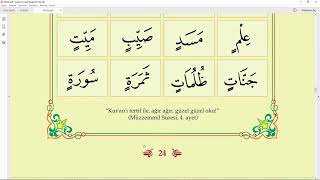 عِلْمٍ مَسَدٍ صَيِّبٍ مَيِّتٍ
جَنَّاتٍ ظُلُمَاتٍ ثَمَرَةٍ سُورَةٍ
"Kur'an'ı tertil ile, ağır ağır, güzel güzel oku!"
(Müzzemmil Suresi, 4. ayet)
24